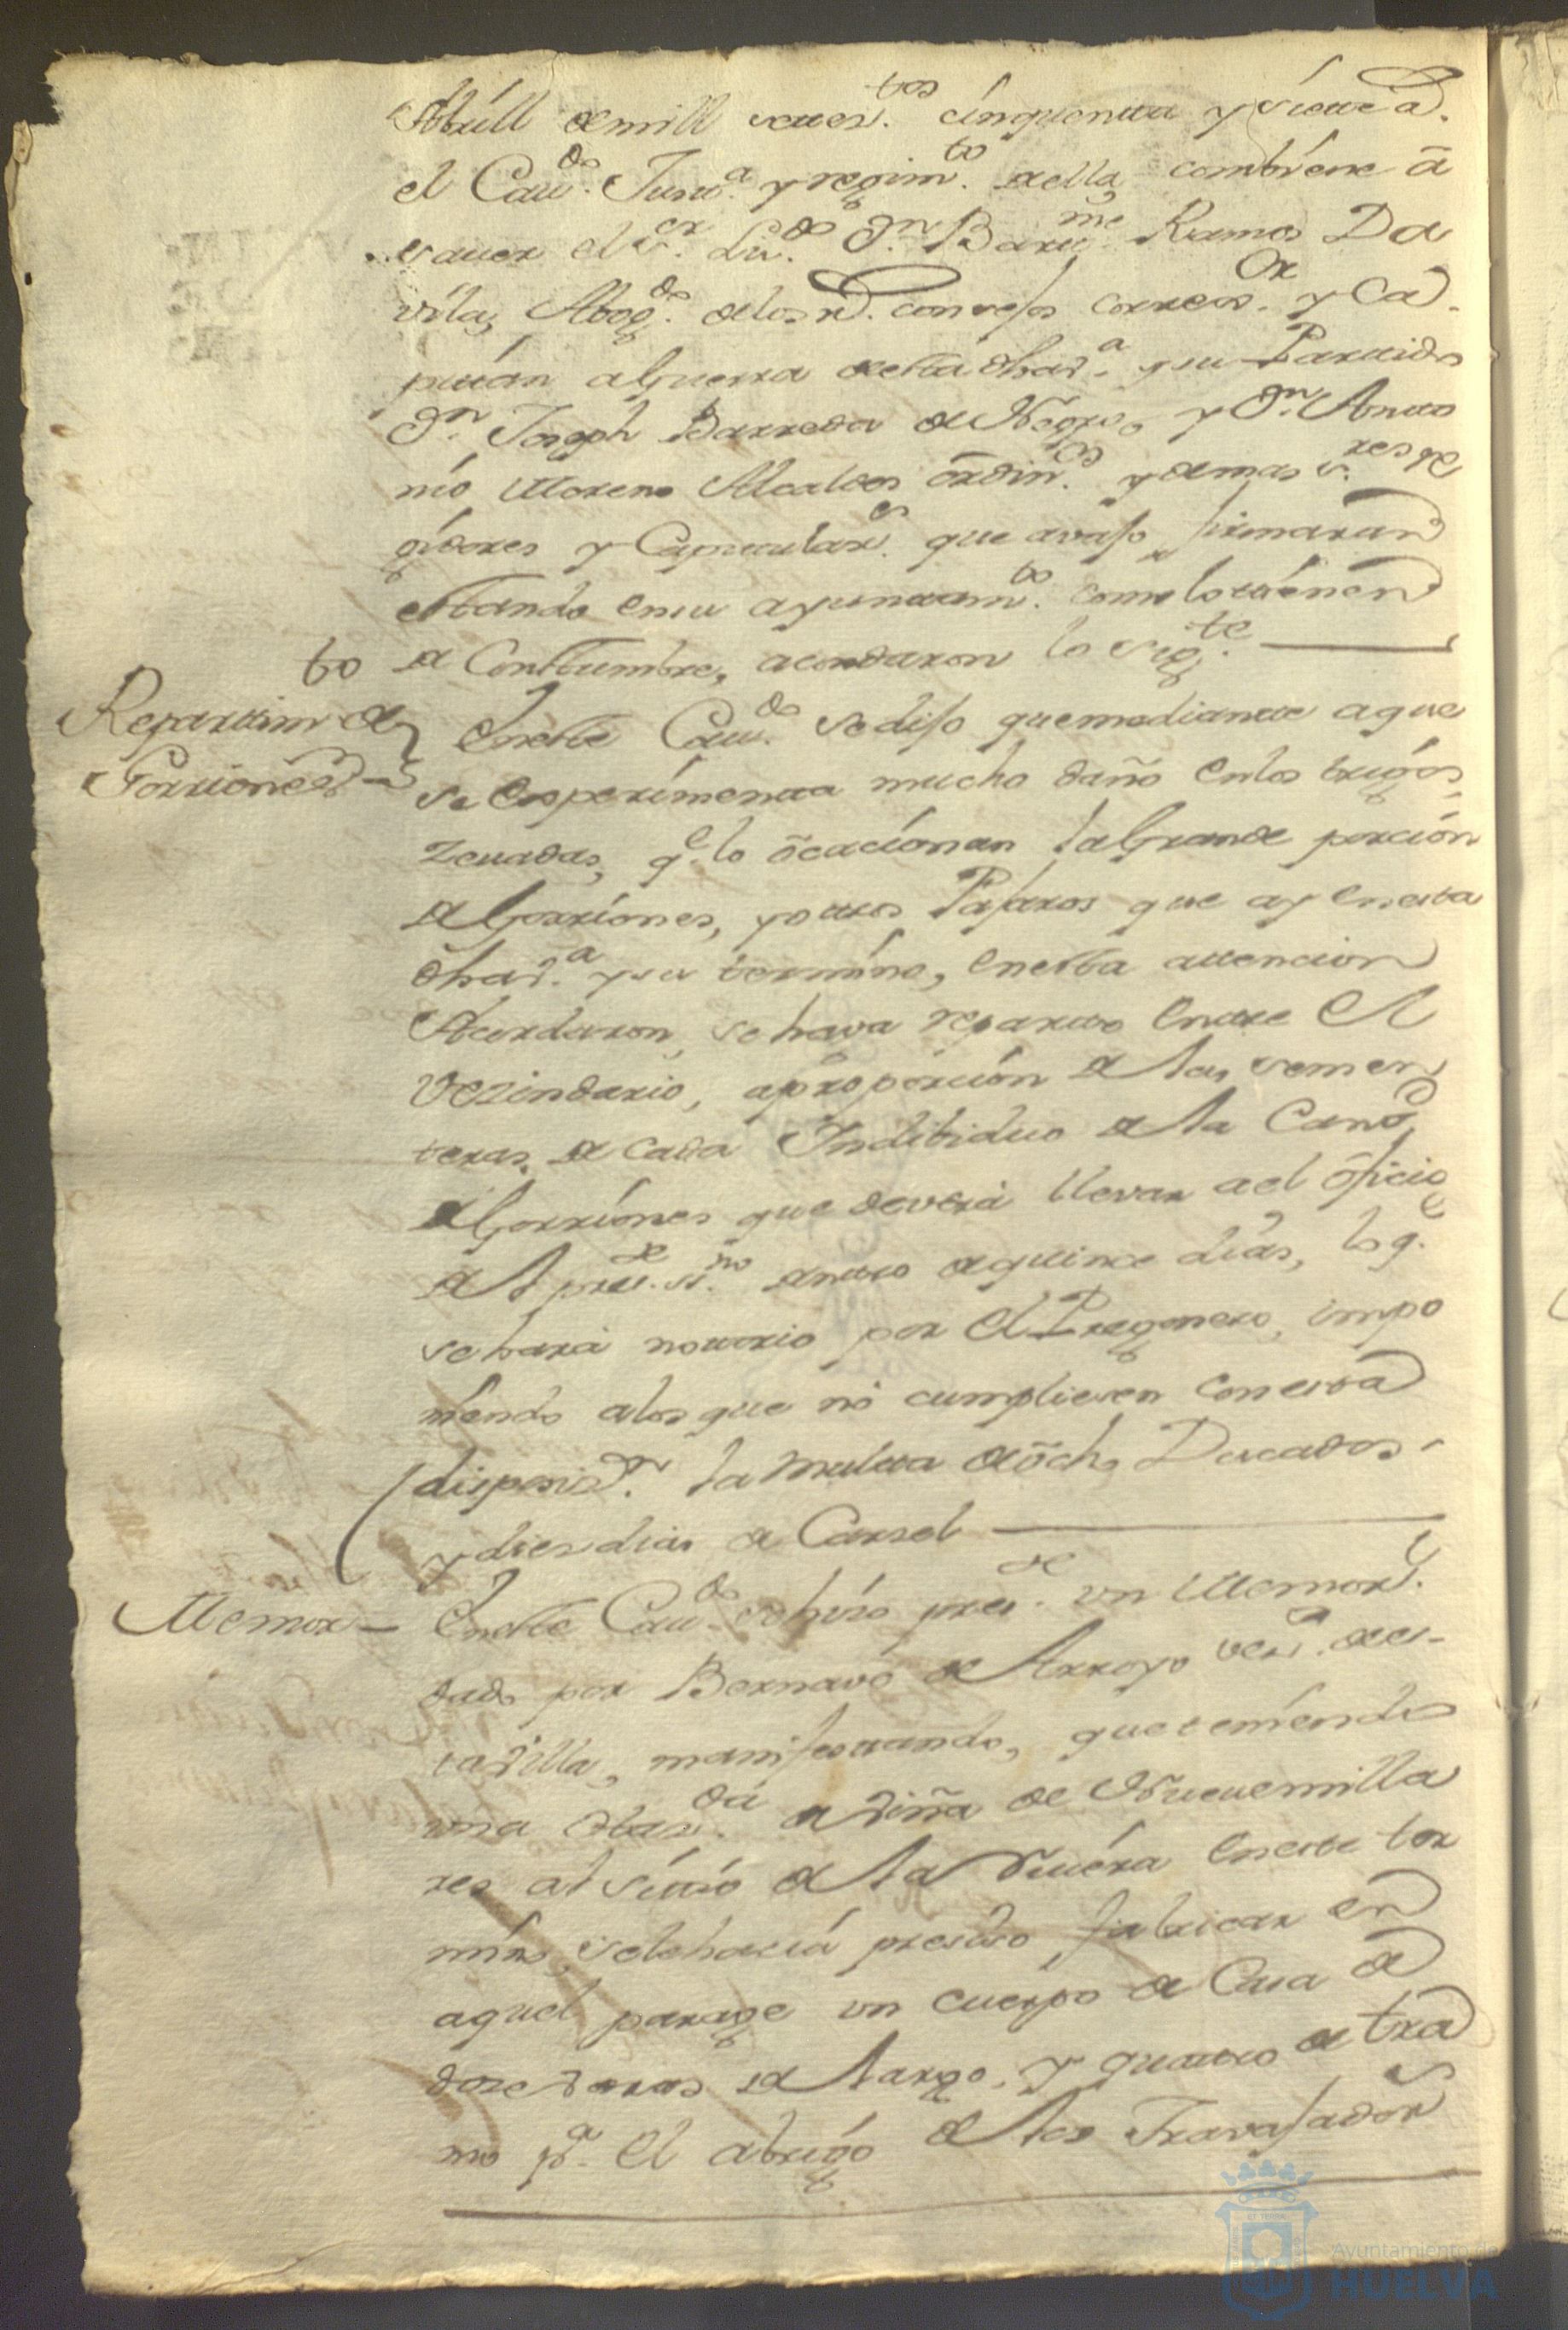 Abrill de mill setez.tos cinquenta y siete a.
el Cav.do Just.a y regim.to della combiene a
saver el S.or Liz.do D.n Bart.me Ramos Da
vila, Abog.do de los R. consejos correx.or y Ca
pitan a Guerra de esta dha V.a y su Partido
D.n Joseph Barreda de Negro, y D.n Anto
nio Moreno Alcaldes ordin.os y demas S.res Re
gidores y Capitulares que avajo firmaran
estando en su ayuntam.to como lo tienen
de Constumbre, acordaron lo sig.te
Repartim.to de
Gorriones
En este Cav.do se dijo que mediante a que
se esperimenta mucho daño en los trigos,
zevadas, q.e lo ocacionan la Grande porcion
de Gorriones, y otros Pajaros que ay en esta
dha V.a y su termino, en esta attencion
Acordaron se haga reparto entre el
Vezindario, a proporcion de las semen
teras de cada Indibiduo de la Cant.d
de Gorriones que deverá llevar a el oficio
del pres.te ss.no dentro de quince dias, lo q.e
se hará notorio por el Pregonero, impo
niendo a los que no cumpliesen con esta
disposiz.n la multa de ocho Ducados
y dies dias de Carsel
Memor.
En este Cav.do se hizo pres.te un Memor.l
dado por Bernavé de Arroyo vez.o de es
ta Villa, manifestando, que teniendo
una Eredad de Viña de Nuevemilla
res al sitio de la Rivera en este ter
mino, se le hacia presiso fabricar en
aquel parage un cuerpo de Casa de
doze varas de largo, y quatro de tra
mo p.a el abrigo de los Travajadores
Ayuntamiento de
HUELVA